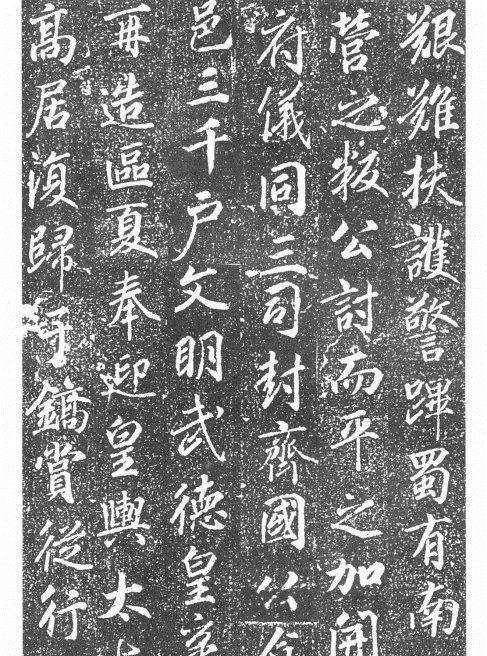 艱難扶護警蹕蜀有南
營之叛公討而平之加開
府儀同三司封齊國公食
邑三千戶文明武德皇帝
再造區夏奉迎皇輿太上
高居復歸河鎬賞從行